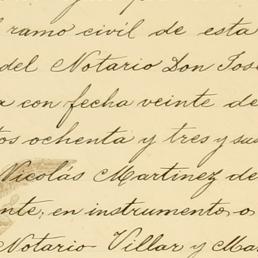 ramo civil de esta
del Notario Don José
con fecha veinte de
tos ochenta y tres y sus
Nicolás Martinez de
nte, en instrumento o
Notario Villar y Ma